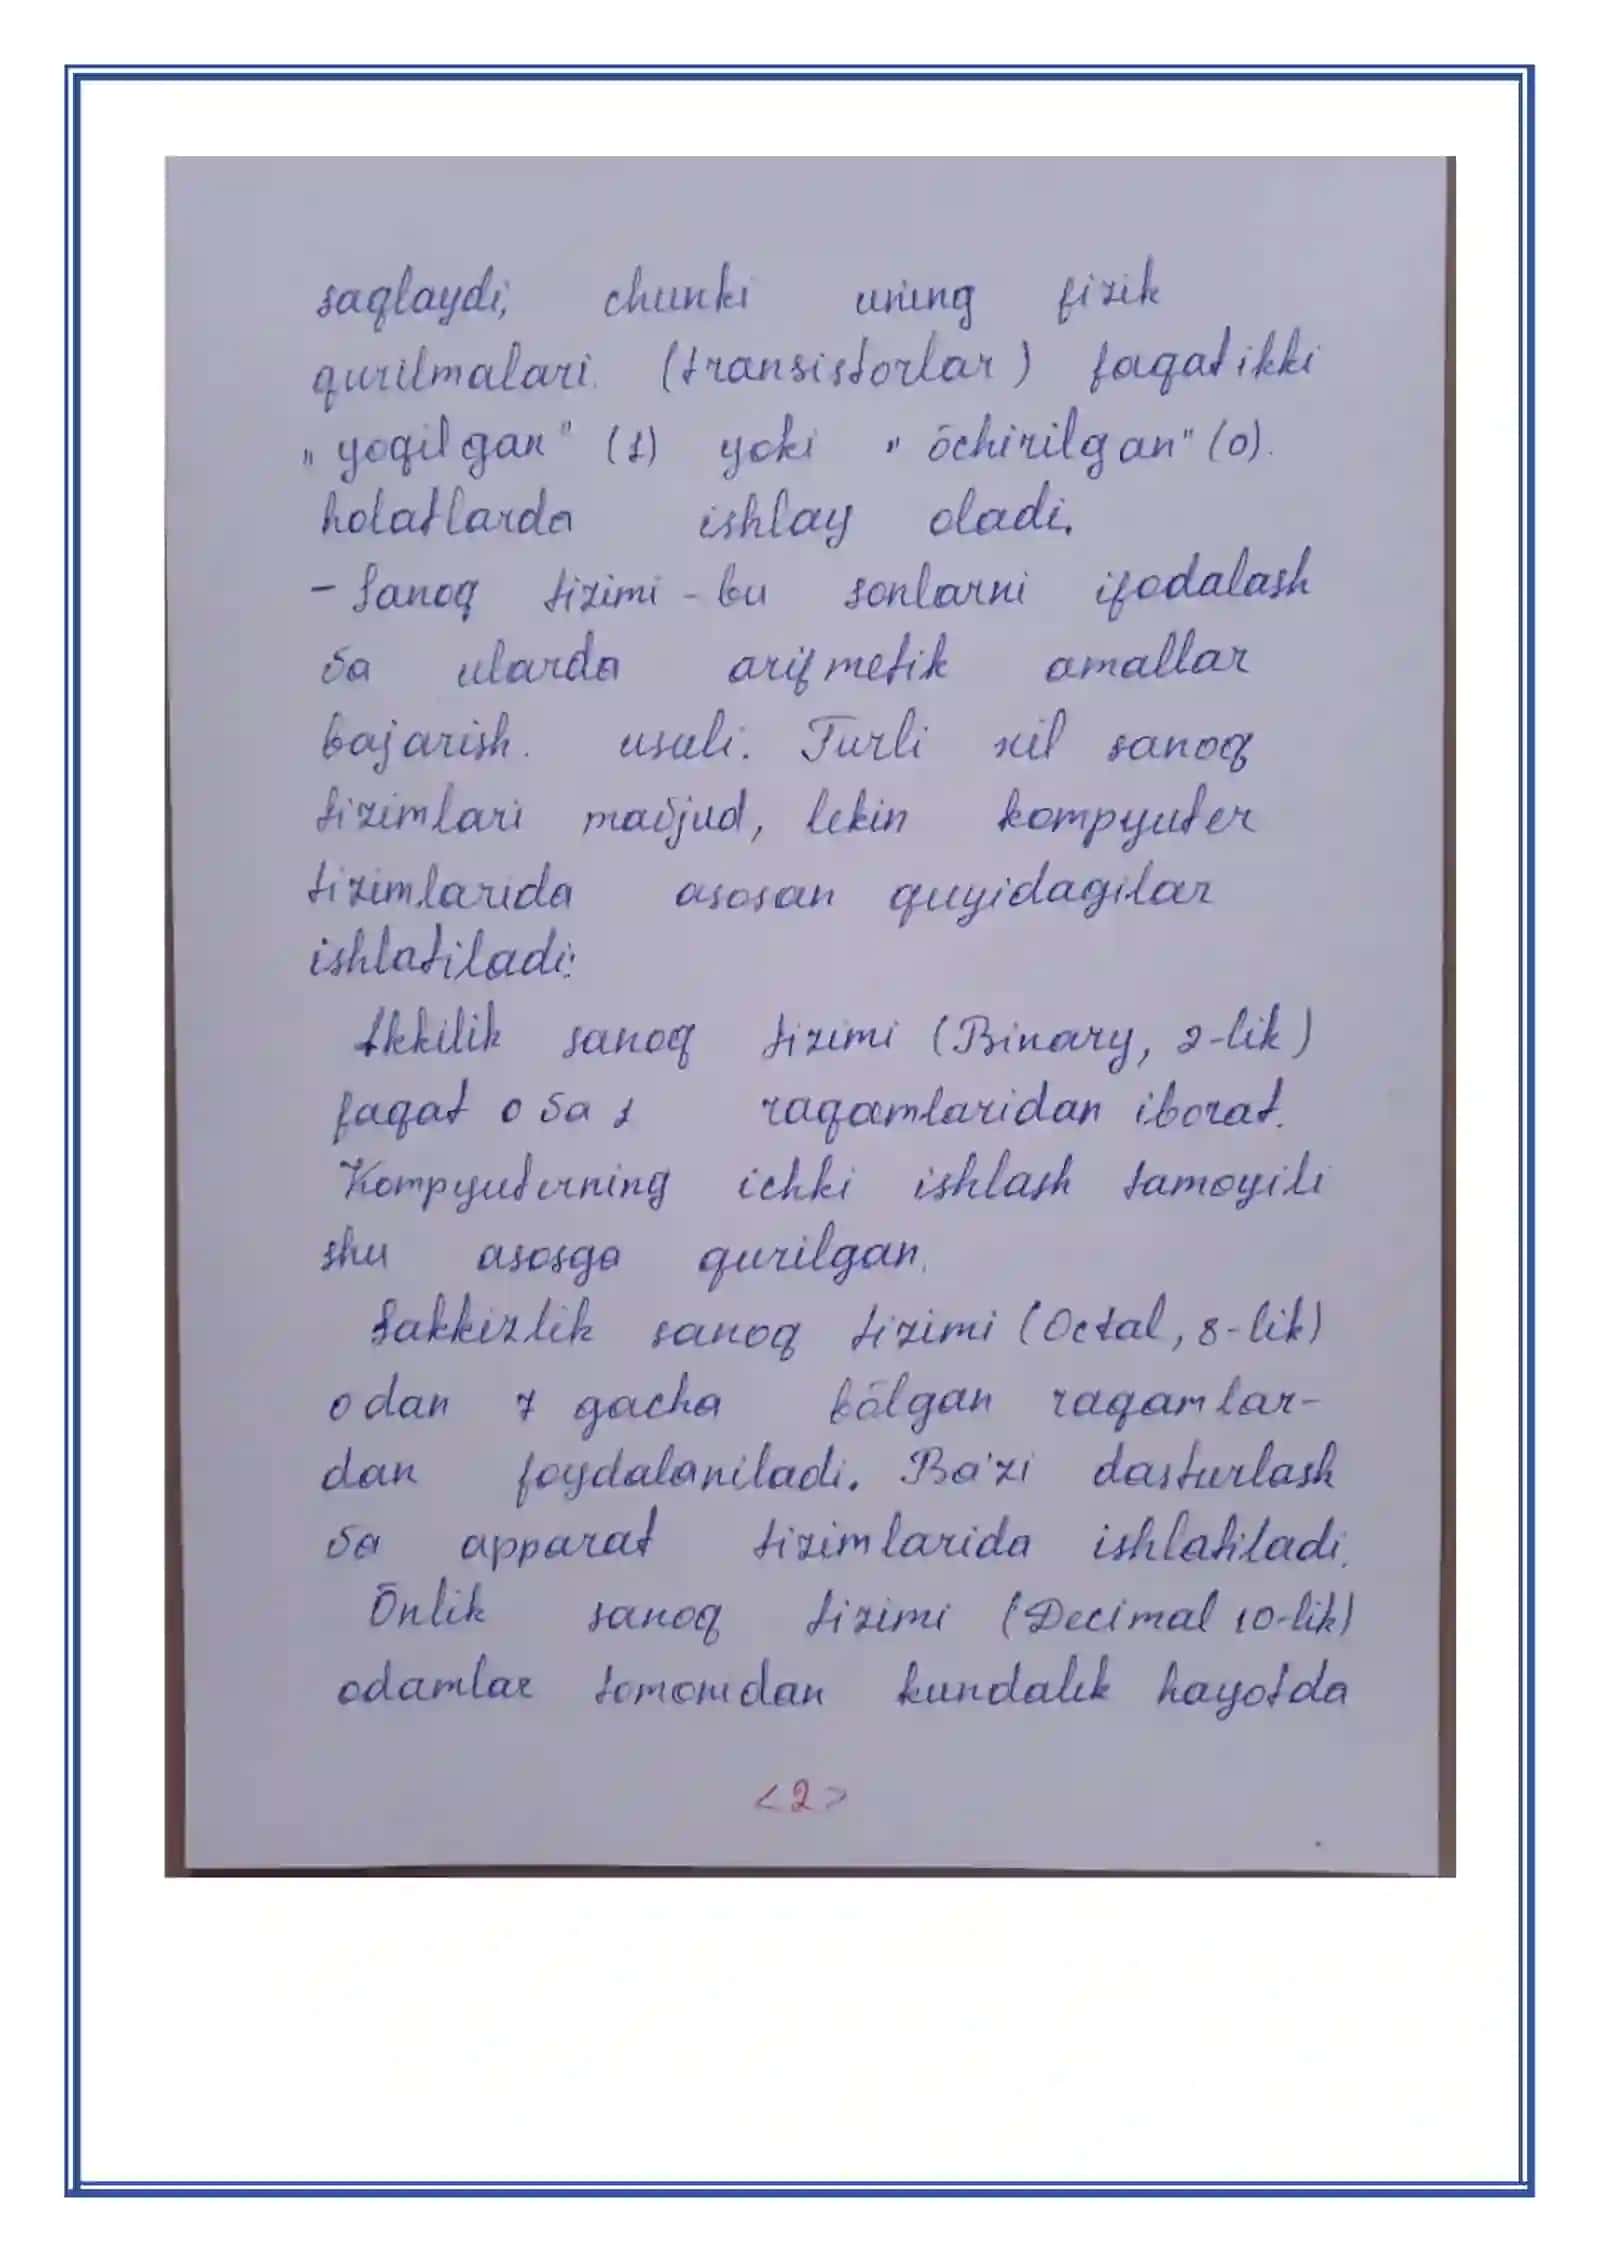 saqlaydi, chunki uning fizik
qurilmalari. (transistorlar) faqat ikki
„yoqilgan" (1) yoki „ōchirilgan" (0).
holatlarda ishlay oladi.
- Sanoq tizimi - bu sonlarni ifodalash
va ularda arifmetik amallar
bajarish. usuli. Turli xil sanoq
tizimlari mavjud, lekin kompyuter
tizimlarida asosan quyidagilar
ishlatiladi:
Ikkilik sanoq tizimi (Binary, 2-lik)
faqat 0 va 1 raqamlaridan iborat.
Kompyuterning ichki ishlash tamoyili
shu asosga qurilgan.
Sakkizlik sanoq tizimi (Octal, 8-lik)
0 dan 7 gacha bōlgan raqamlar-
dan foydalaniladi. Ba'zi dasturlash
va apparat tizimlarida ishlatiladi.
Ōnlik sanoq tizimi (Decimal 10-lik)
odamlar tomonidan kundalik hayotda
<2>